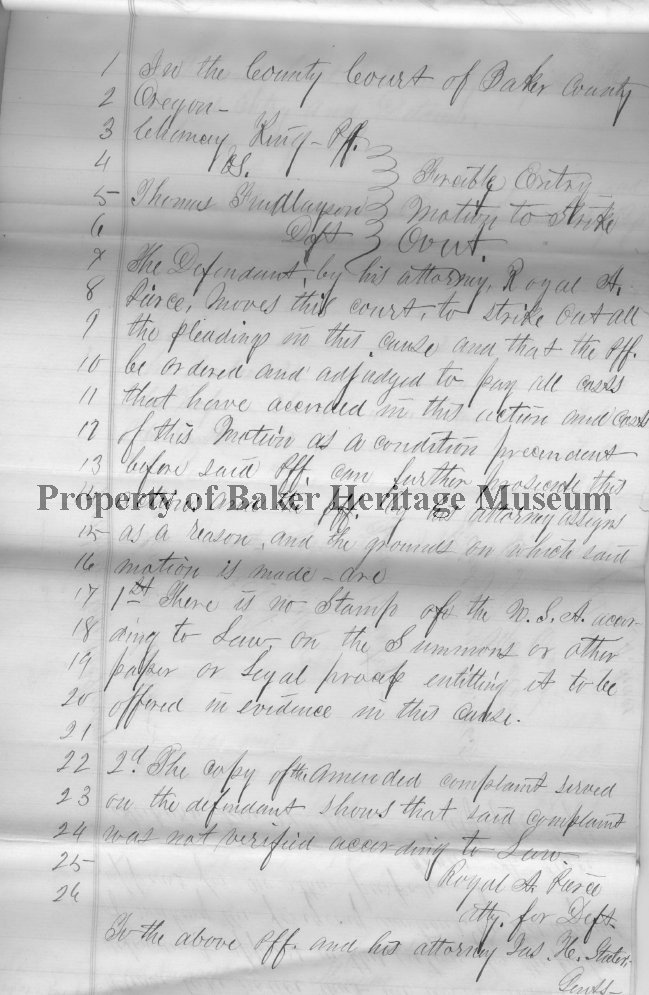 1 In the County Court of Baker County
2 Oregon -
3 Chancey King - Plf.
4 Vs. } Forcible Entry -
5 Thomas Findlayson } Motion to Strike
6 Deft } Out.
7 The Defendant, by his attorney, Royal A.
8 Pierce, Moves this court, to strike out all
9 the pleadings in this cause and that the Plf.
10 be ordered and adjudged to pay all costs
11 that have accrued in this action and costs
12 of this Motion as a condition precendent
13 before said Plf. can further prosecute this
Property of Baker Heritage Museum
14 action, and the Plf. by his attorney assigns
15 as a reason, and the grounds on which said
16 motion is made - are
17 1st There is no Stamp of the U.S.A. accor-
18 ding to Law on the Summons or other
19 paper or Legal process entitling it to be
20 offered in evidence in this cause.
21
22 2d The copy of the Amended complaint served
23 on the defendant shows that said complaint
24 was not verified according to Law.
25 Royal A. Pierce
26 Atty. for Deft.
To the above Plf. and his attorney Jas. H.
Gents -